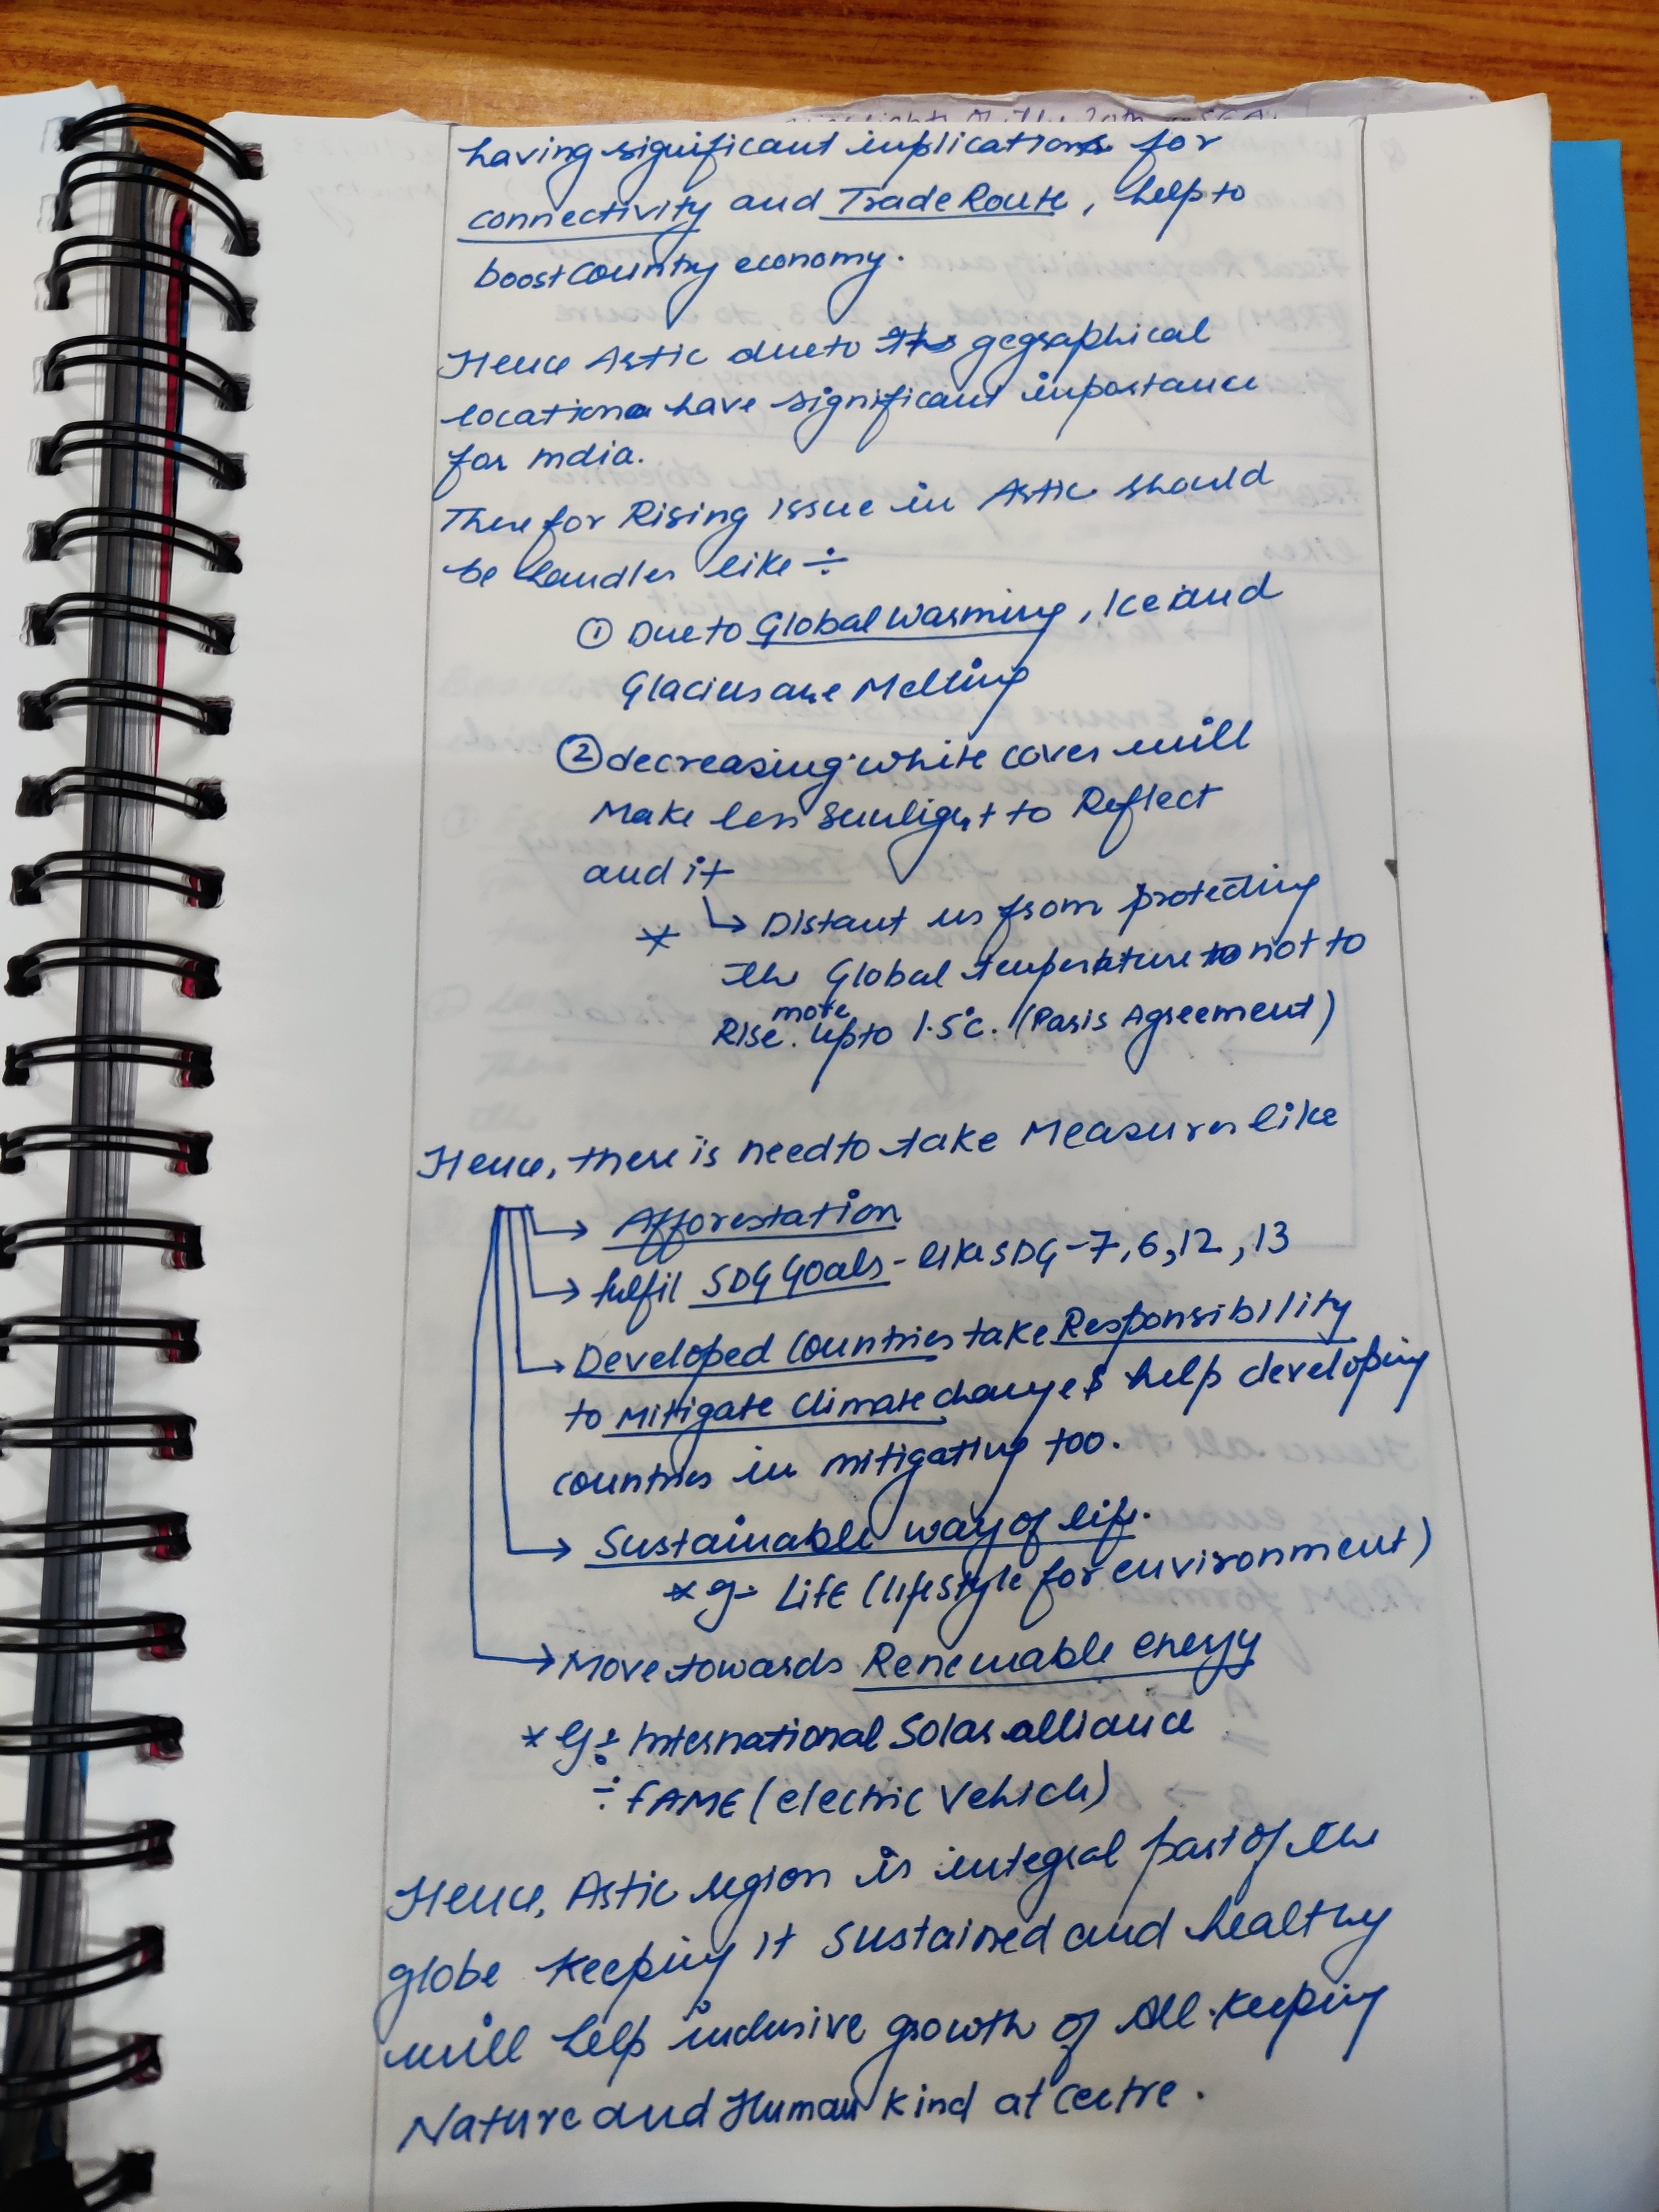 having significant implications for
connectivity and Trade Route, help to
boost country economy.
Hence Arctic due to geographical
location have significant importance
for India.
Therefor Rising issue in Arctic should
be handles like ÷
① Due to Global Warming, Ice and
Glaciers are Melting
② decreasing white cover will
Make less sunlight to Reflect
and it
* ↳ Distant us from protecting
the Global temperature to not to
more
Rise. upto 1.5°c. (Paris Agreement)
Hence, there is need to take Measures like
→ Afforestation
→ fulfil SDG Goals - like SDG-7, 6, 12, 13
→ Developed Countries take Responsibility
to Mitigate Climate change & help developing
countries in mitigating too.
→ Sustainable way of life.
* eg- LiFE (lifestyle for environment)
→ Move towards Renewable energy
* eg ÷ International Solar alliance
÷ FAME (electric Vehicle)
Hence, Arctic region is integral part of the
globe keeping it sustained and healthy
will help inclusive growth of All. keeping
Nature and Human kind at centre.